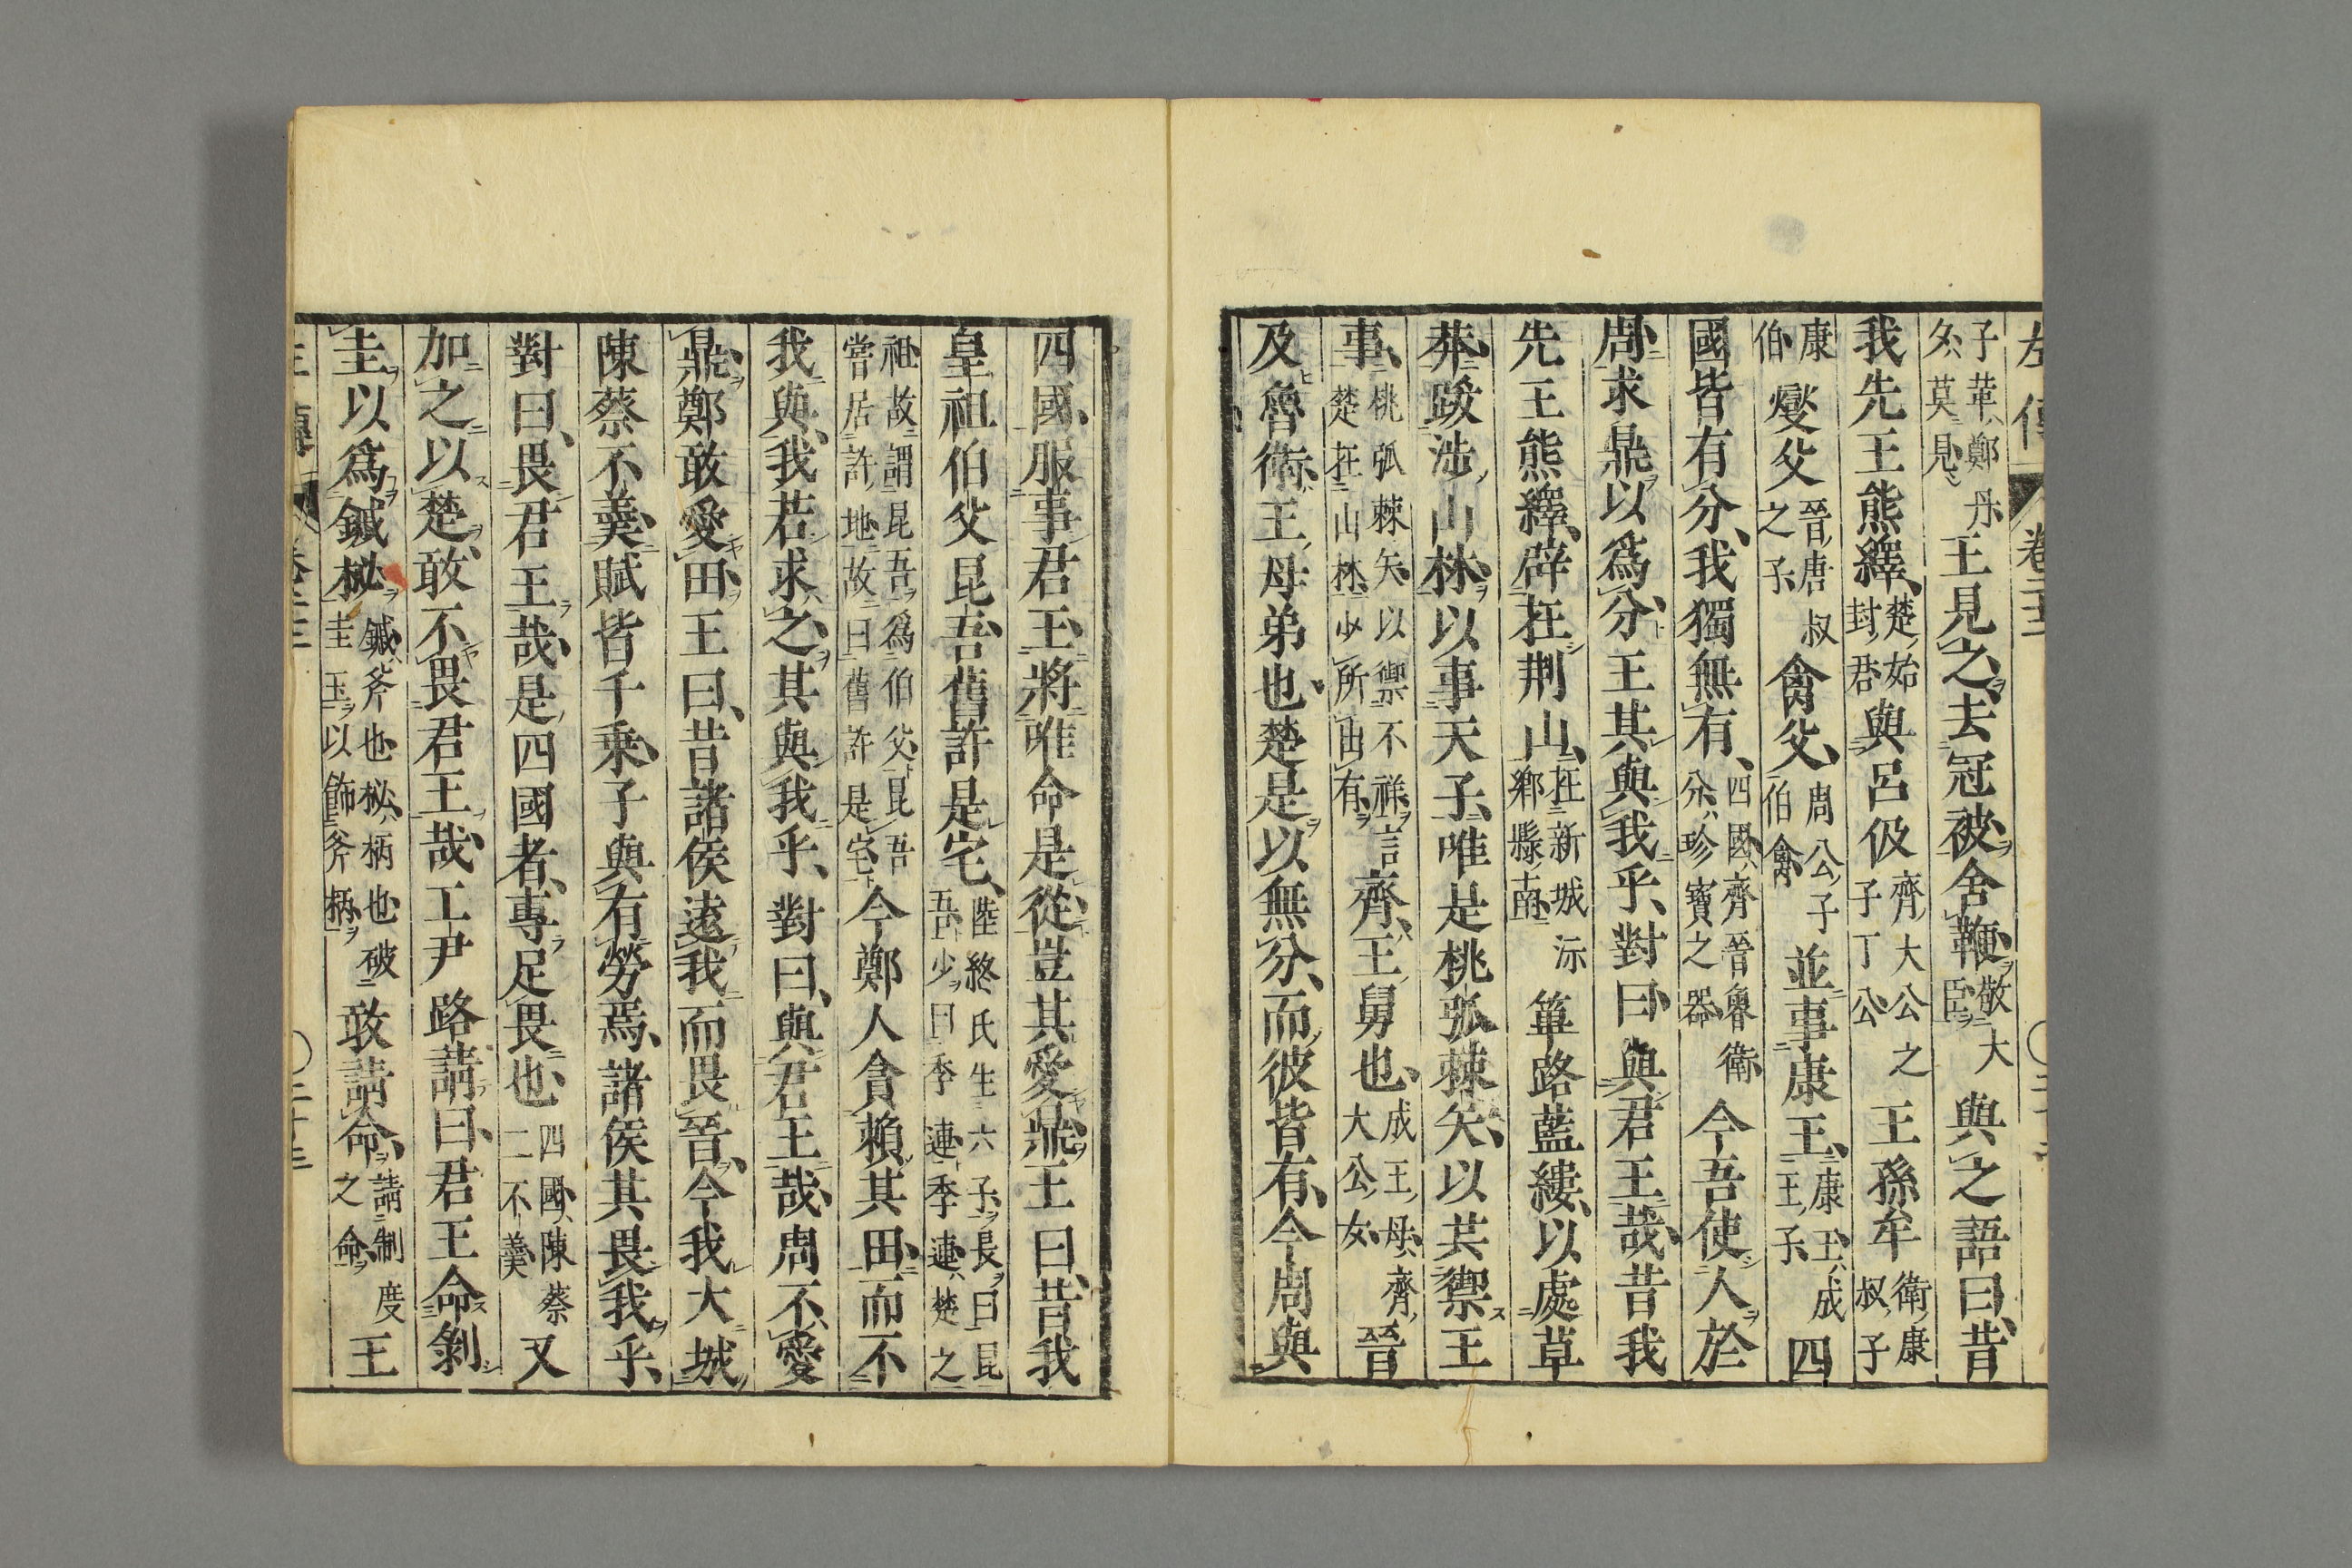 左傳 卷二十二
子革鄭丹夕莫見王見之去冠被舍鞭敬大臣與之語曰昔
我先王熊繹楚始封君與呂伋齊大公之子丁公王孫牟衛康叔子
康伯燮父晉唐叔之子禽父周公子伯禽並事康王康王成王子四
國皆有分我獨無有四國齊晉魯衛分珍寶之器今吾使人於
周求鼎以爲分王其與我乎對曰與君王哉昔我
先王熊繹辟在荆山在新城沶鄉縣南篳路藍縷以處草
莽跋涉山林以事天子唯是桃弧棘矢以共禦王
事桃弧棘矢以禦不祥言楚在山林少所出有齊王舅也成王母齊大公女晉
及魯衛王母弟也楚是以無分而彼皆有今周與
四國服事君王將唯命是從豈其愛鼎王曰昔我
皇祖伯父昆吾舊許是宅陸終氏生六子長曰昆吾少曰季連季連楚之
祖故謂昆吾爲伯父昆吾嘗居許地故曰舊許是宅今鄭人貪賴其田而不
我與我若求之其與我乎對曰與君王哉周不愛
鼎鄭敢愛田王曰昔諸侯遠我而畏晉今我大城
陳蔡不羹賦皆千乘子與有勞焉諸侯其畏我乎
對曰畏君王哉是四國者專足畏也四國陳蔡二不羹又
加之以楚敢不畏君王哉工尹路請曰君王命剝
圭以爲鏚柲鏚斧也柲柄也破圭玉以飾斧柄敢請命請制度之命王